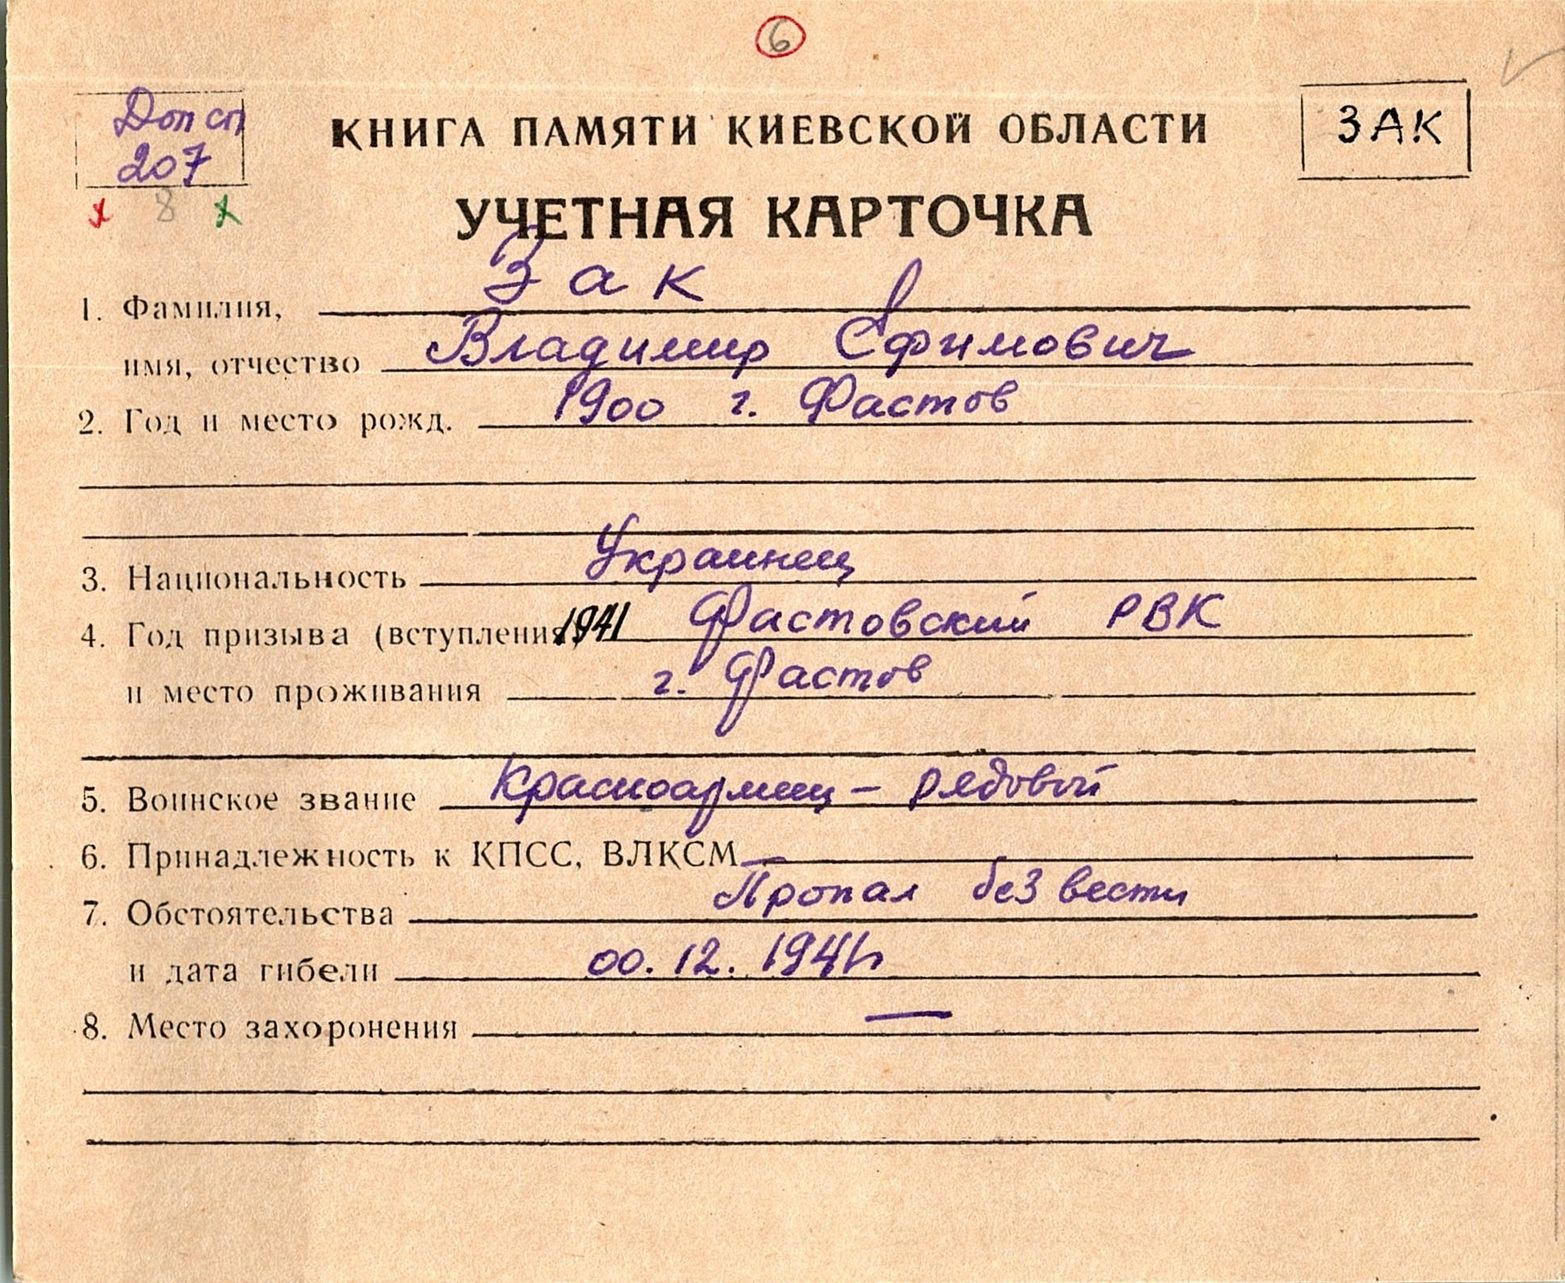 6
Доп сп
207
8
КНИГА ПАМЯТИ КИЕВСКОЙ ОБЛАСТИ
ЗАК
УЧЕТНАЯ КАРТОЧКА
1. Фамилия, Зак
имя, отчество Владимир Ефимович
2. Год и место рожд. 1900 г. Фастов
3. Национальность Украинец
4. Год призыва (вступления) 1941 Фастовский РВК
и место проживания г. Фастов
5. Воинское звание Красноармеец – рядовой
6. Принадлежность к КПСС, ВЛКСМ —
7. Обстоятельства Пропал без вести
и дата гибели 00.12.1941г
8. Место захоронения —